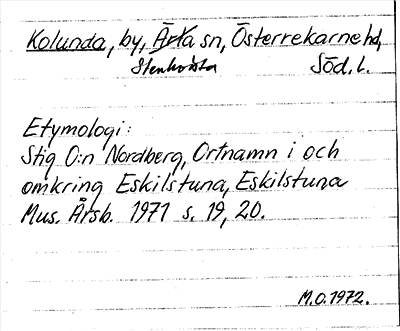 Kolunda, by, Ärla sn, Österrekarne hd,
Stenkvista Söd. l.
Etymologi:
Stig O:n Nordberg, Ortnamn i och
omkring Eskilstuna, Eskilstuna
Mus. Årsb. 1971 s. 19, 20.
M.O. 1972.